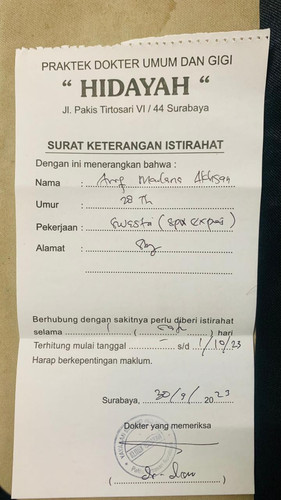 PRAKTEK DOKTER UMUM DAN GIGI
“ HIDAYAH “
Jl. Pakis Tirtosari VI / 44 Surabaya
SURAT KETERANGAN ISTIRAHAT
Dengan ini menerangkan bahwa :
Nama : Arif Maulana
Umur : 28 Th
Pekerjaan : Swasta (spx expres)
Alamat : Sby
Berhubung dengan sakitnya perlu diberi istirahat
selama 1 ( satu ) hari
Terhitung mulai tanggal s/d 1/10/23
Harap berkepentingan maklum.
Surabaya, 30/9/ 2023
Dokter yang memeriksa